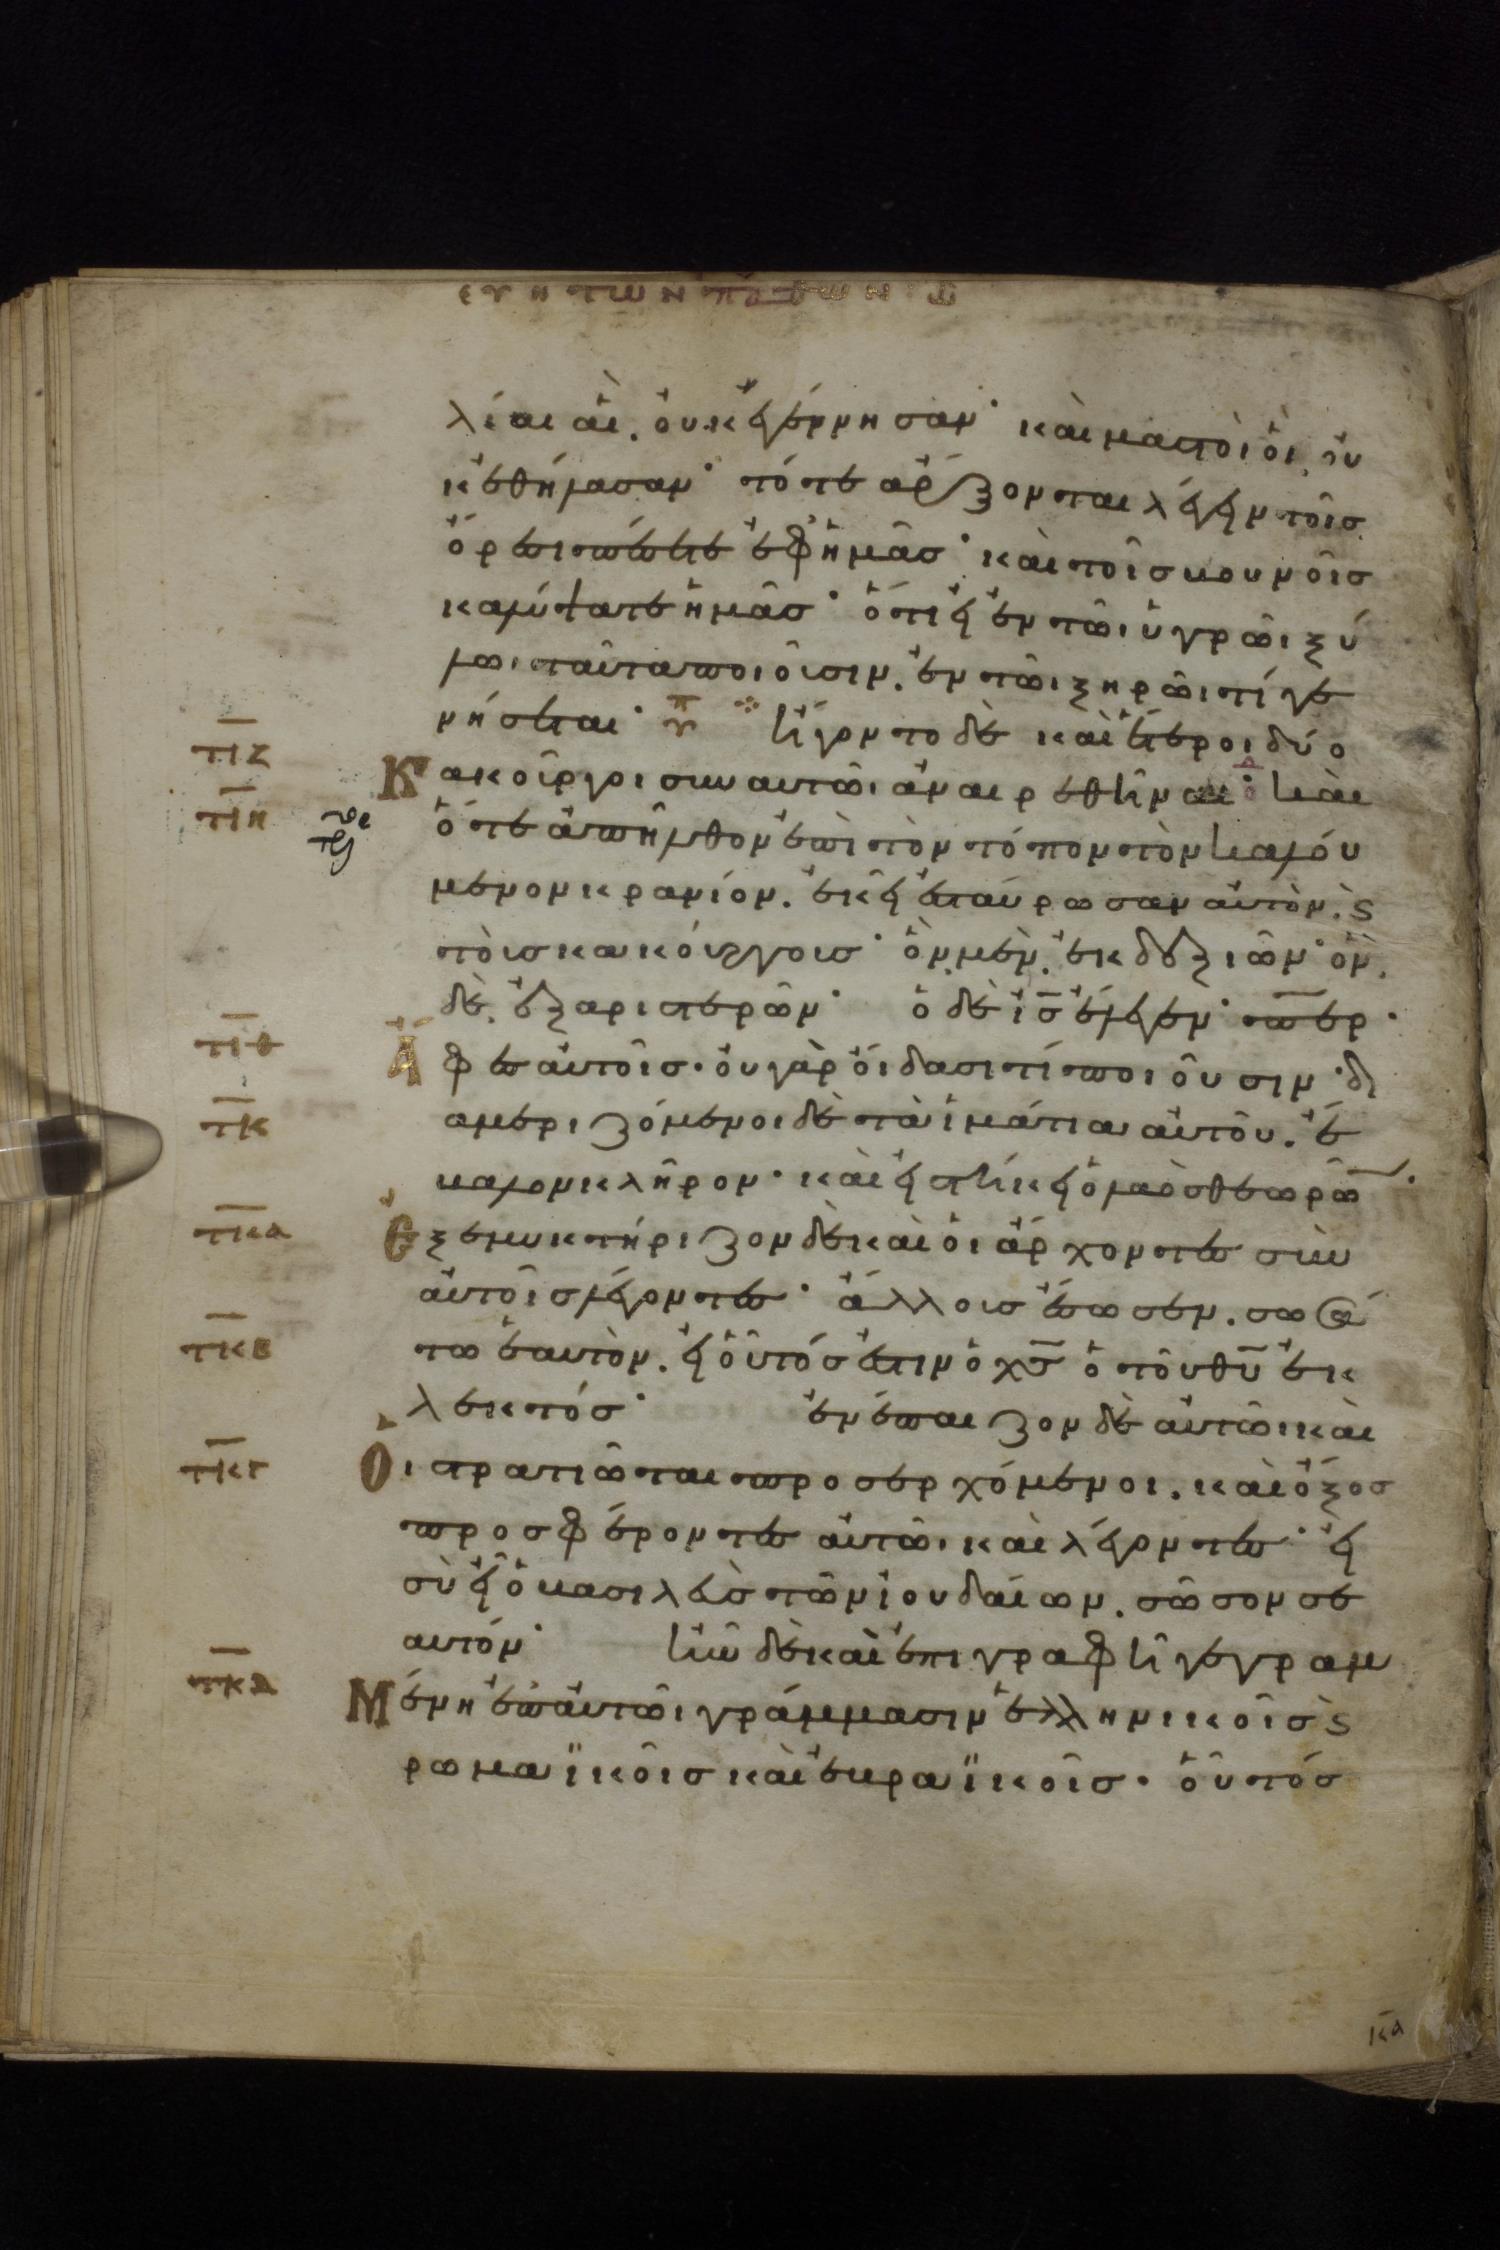 λίαι αἳ, οὐκ ἐγέννησαν· καὶ μαστοὶ οἳ, οὐ
κ ἐθήλασαν· τότε ἄρξονται λέγειν τοῖς
ὄρεσι πέσετε ἐφ ἡμᾶς· καὶ τοῖς βουνοῖς
καλύψατε ἡμᾶς· ὅτι εἰ ἐν τῶι ὑγρῶι ξύ
λωι ταῦτα ποιοῦσιν, ἐν τῶι ξηρῶι τί γέ
τιζ
νήσεται· ἤγοντο δὲ καὶ ἕτεροι δύο
Κακοῦργοι σὺν αυτῶι ἀναιρεθῆναι· καὶ
τιη
ὅτε ἀπῆλθον ἐπὶ τὸν τόπον τὸν καλού
μενον κρανίον, ἐκεῖ ἐσταύρωσαν αὐτὸν, ϗ
τοὺς κακούργους· ὃν μὲν, ἐκ δεξιῶν· ὃν
δὲ, ἐξ αριστερῶν· ὁ δὲ ι̅ς̅ ἔλεγεν· π̅ερ·
τιθ
Ἄφες αὐτοῖς· οὐ γὰρ οἴδασι τί ποιοῦσιν· δι
τκ
αμεριζόμενοι δὲ τὰ ἱμάτια αὐτοῦ, ἔ
βαλον κλῆρον· καὶ εἱστήκει ὁ λαὸς θεωρῶ̅·
τκα
Ἐξεμυκτήριζον δὲ καὶ οἱ ἄρχοντες σὺν
αὐτοῖς λέγοντες· ἄλλους ἔσωσεν, σωσά
τκβ
τω ἑαυτὸν, εἰ οὗτός ἐστιν ὁ χ̅ς̅ ὁ τοῦ θ̅υ̅ ἐκ
λεκτός· ἐνέπαιζον δὲ αὐτῶι καὶ
τκγ
Οἱ στρατιῶται προσερχόμενοι, καὶ ὄξος
προσφέροντες αὐτῶι καὶ λέγοντες· εἰ
σὺ εἶ ὁ βασιλεὺς τῶν ἰουδαίων, σῶσον σε
αυτόν· ἦν δὲ καὶ ἐπιγραφὴ γεγραμ
τκδ
Μένη ἐπ αὐτῶι γράμμασιν ἑλληνικοῖς ϗ
ρωμαϊκοῖς καὶ ἑβραϊκοῖς· οὗτός
κα